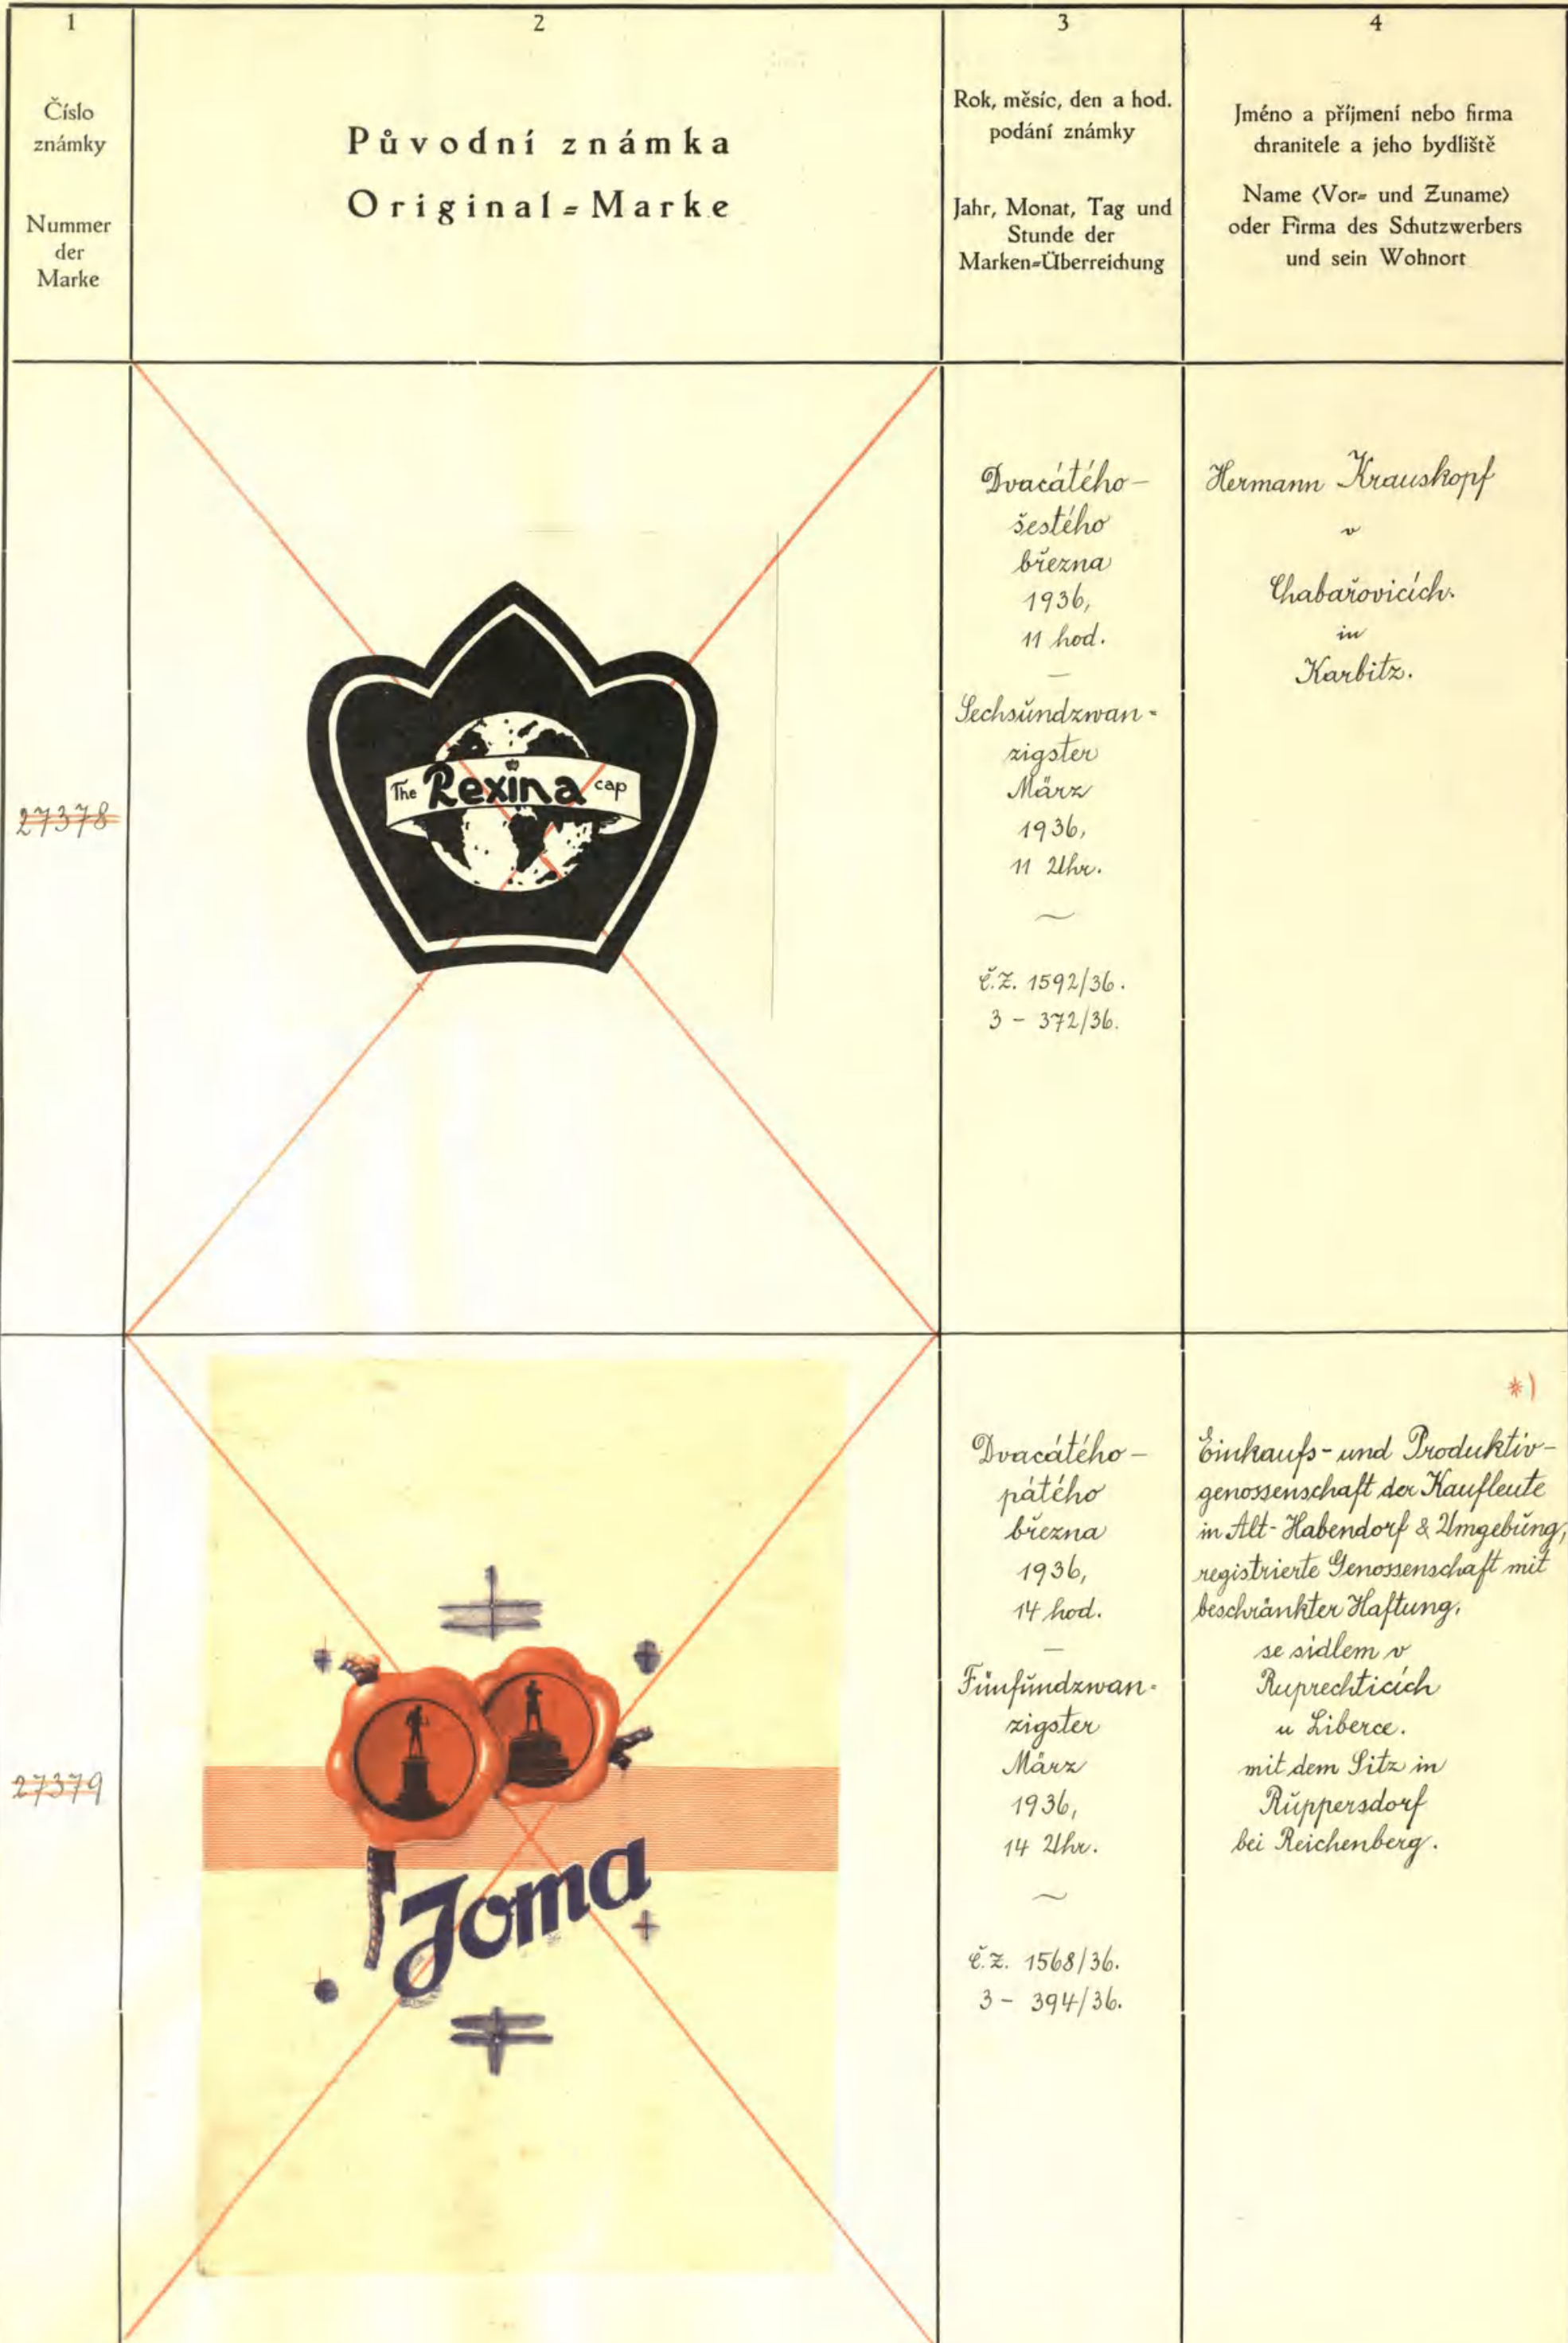 1
Číslo
známky
Nummer
der
Marke
2
Původní známka
Original=Marke
3
Rok, měsíc, den a hod.
podání známky
Jahr, Monat, Tag und
Stunde der
Marken=Überreichung
4
Jméno a příjmení nebo firma
chranitele a jeho bydliště
Name (Vor= und Zuname)
oder Firma des Schutzwerbers
und sein Wohnort
27378
The Rexina cap
Dvacátého-
šestého
března
1936,
11 hod.
—
Sechsŭndzwan-
zigster
März
1936,
11 Uhr.
~
Č.Z. 1592/36.
3 - 372/36.
Hermann Krauskopf
v
Chabařovicích.
in
Karbitz.
27379
Joma
Dvacátého-
pátého
března
1936,
14 hod.
—
Fünfŭndzwan-
zigster
März
1936,
14 Uhr.
~
Č.Z. 1568/36.
3 - 394/36.
*)
Einkaufs- und Produktiv-
genossenschaft der Kaufleute
in Alt-Habendorf & Umgebŭng,
registrierte Genossenschaft mit
beschränkter Haftung,
se sídlem v
Ruprechticích
u Liberce.
mit dem Sitz in
Rŭppersdorf
bei Reichenberg.